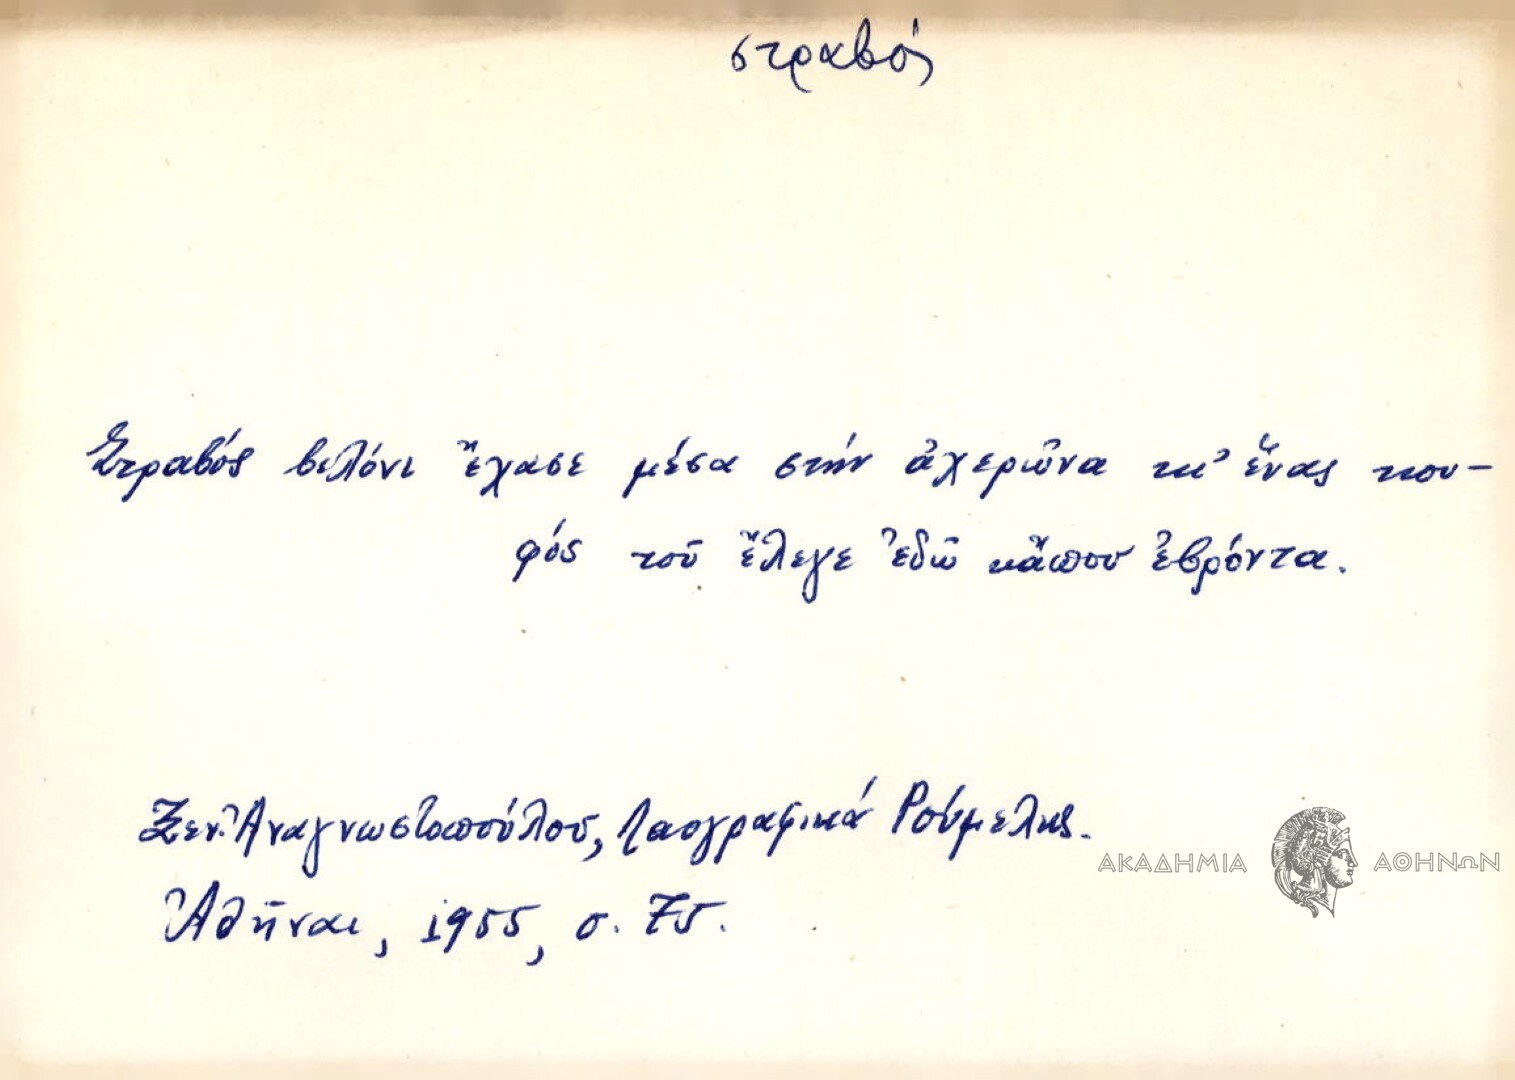 στραβός
Στραβός βελόνι ἔχασε μέσα στήν ἀχερῶνα κι' ἕνας κου-
φός τοῦ ἔλεγε ἐδῶ κἄπου ἐβρόντα.
Ξεν. Ἀναγνωστοπούλου, Λαογραφικά Ρούμελης.
Ἀθῆναι, 1955, σ. 75.
ΑΚΑΔΗΜΙΑ ΑΘΗΝΩΝ